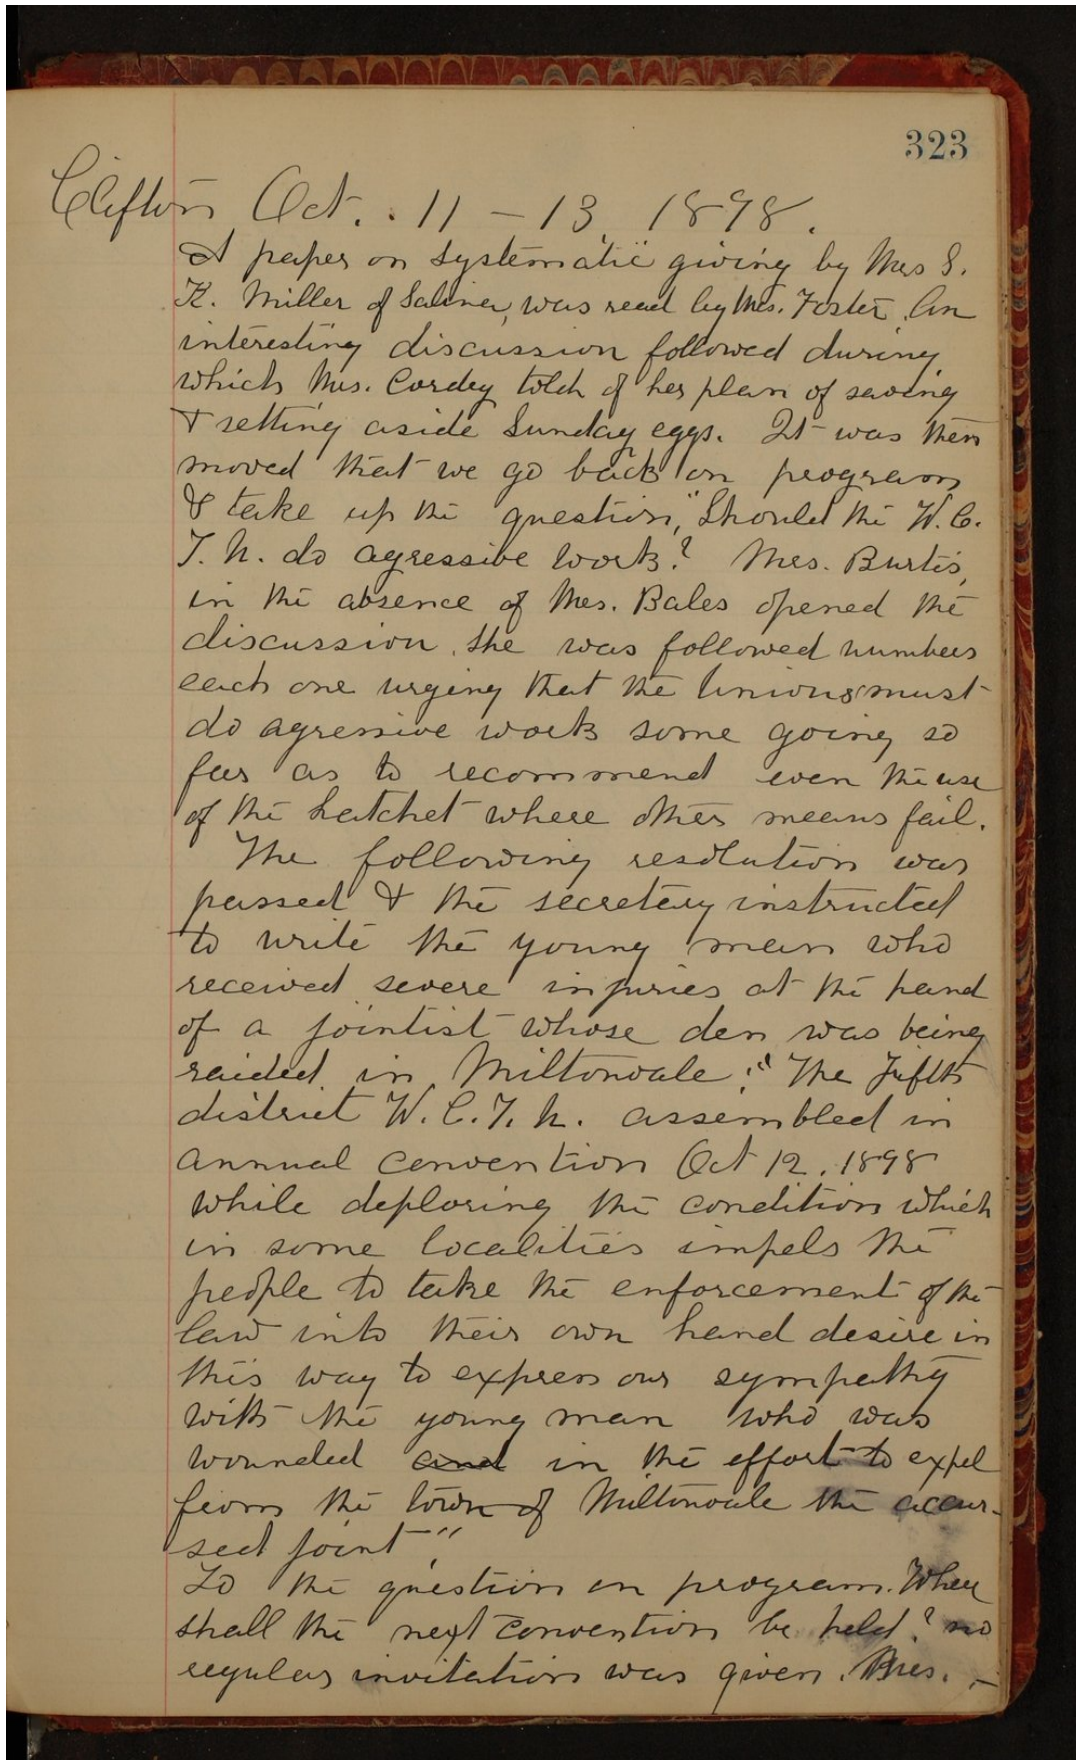 323
Clifton Oct. 11 - 13, 1898.
A paper on systematic giving by Mrs S.
K. Miller of Salina, was read by Mrs. Foster. An
interesting discussion followed during
which Mrs. Cordey told of her plan of saving
& setting aside Sunday eggs. It was then
moved that we go back on program
& take up the question, "Should the W. C.
T. U. do agressive work? Mrs. Burtis,
in the absence of Mrs. Bales opened the
discussion. She was followed numbers
each one urging that the Unions must
do agressive work some going so
far as to recommend even the use
of the hatchet where other means fail.
The following resolution was
passed & the secretary instructed
to write the young man who
received severe injuries at the hand
of a jointist whose den was being
raided in Miltonvale: "The Fifth
district W. C. T. U. assembled in
annual convention Oct 12, 1898
while deploring the condition which
in some localities impels the
people to take the enforcement of the
law into their own hand desire in
this way to express our sympathy
with the young man who was
wounded and in the effort to expel
from the town of Miltonvale the accur-
sed joint".
To the question on program. Where
shall the next convention be held? no
regular invitation was given. Mrs. -